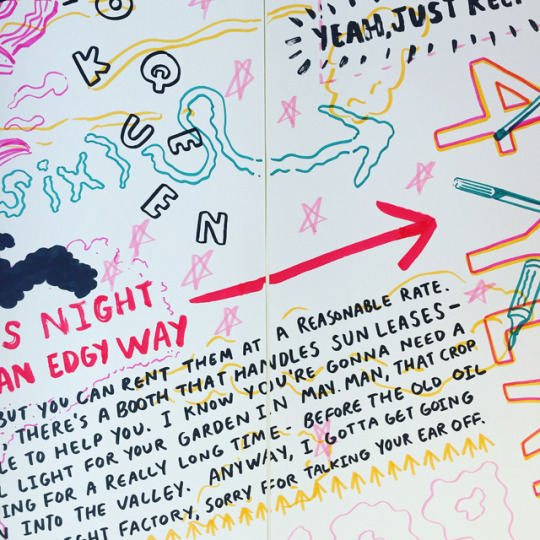 YEAH, JUST KEE
K
QUEEN
Six
4
S NIGHT
AN EDGY WAY
BUT YOU CAN RENT THEM AT A REASONABLE RATE.
, THERE'S A BOOTH THAT HANDLES SUN LEASES-
LE TO HELP YOU. I KNOW YOU'RE GONNA NEED A
L LIGHT FOR YOUR GARDEN IN MAY. MAN, THAT CROP
ING FOR A REALLY LONG TIME- BEFORE THE OLD OIL
N INTO THE VALLEY. ANYWAY, I GOTTA GET GOING
IGHT FACTORY, SORRY FOR TALKING YOUR EAR OFF.